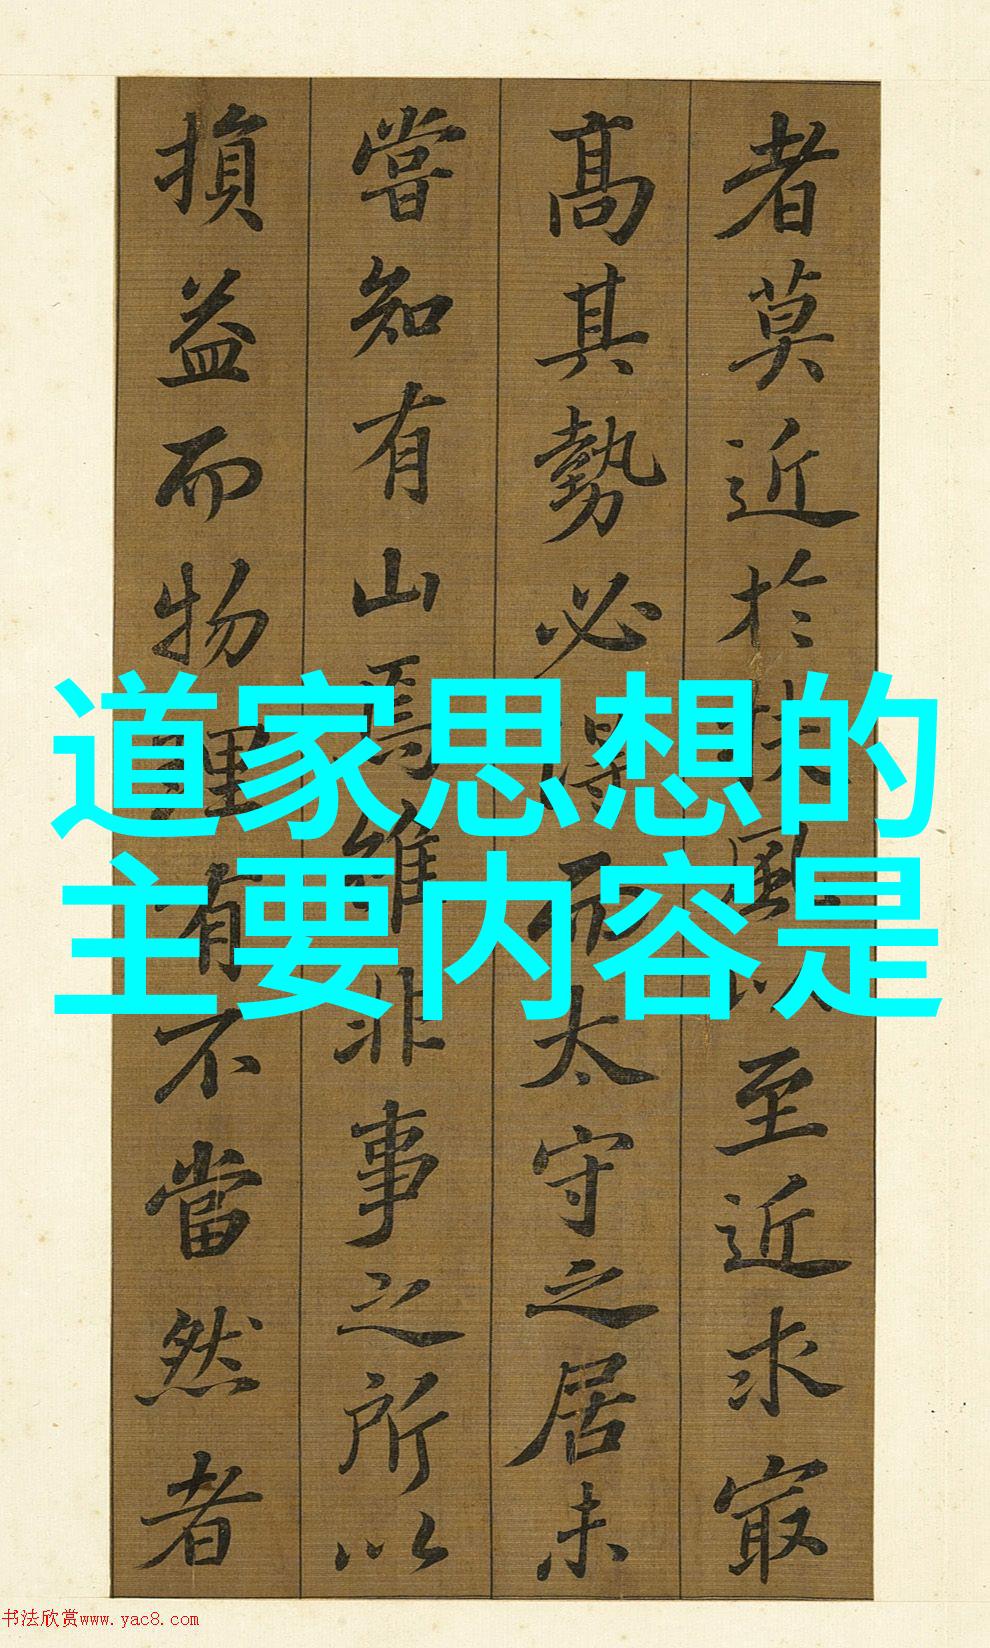 者莫近於扶風以至近求最
高其勢必得而太守之居未
嘗知有山焉維非事之所以
損益而物理有不當然者
道家思想的
主要内容是
书法欣赏www.yac8.com